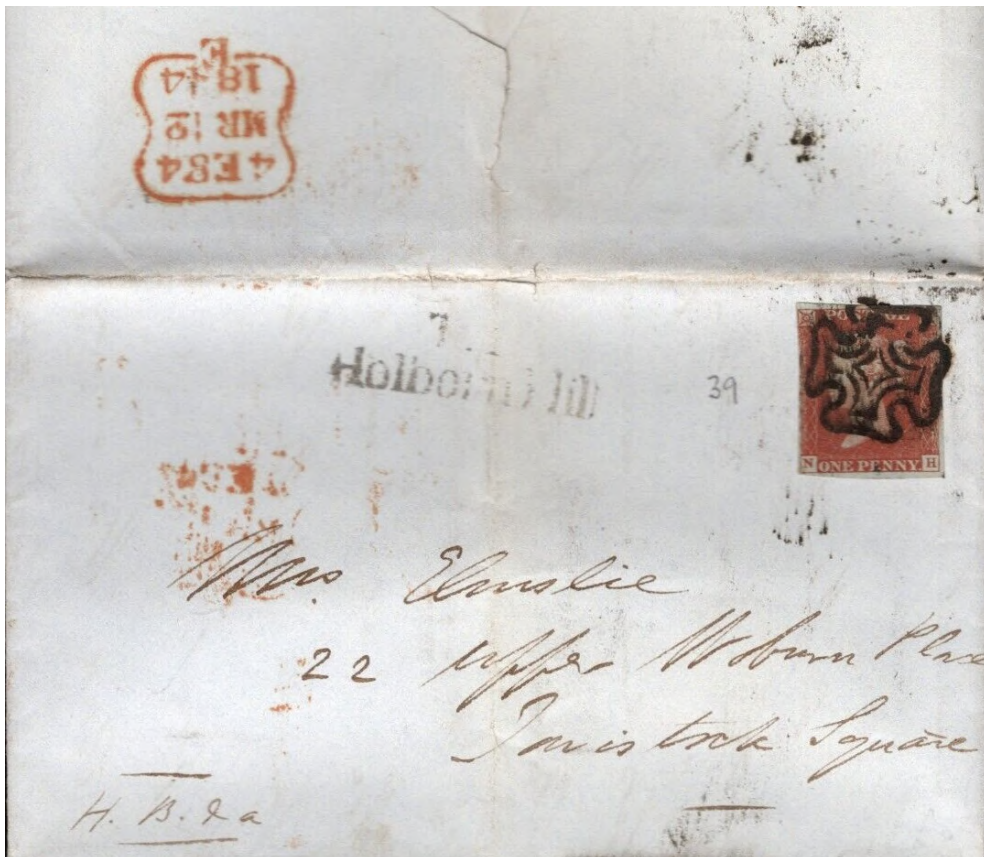 4 EG 4
MR 12
1844
E
Holborn Hill
39
POSTAGE
N ONE PENNY H
Mrs. Elmslie
22 Upper Woburn Place
Tavistock Square
H. B.